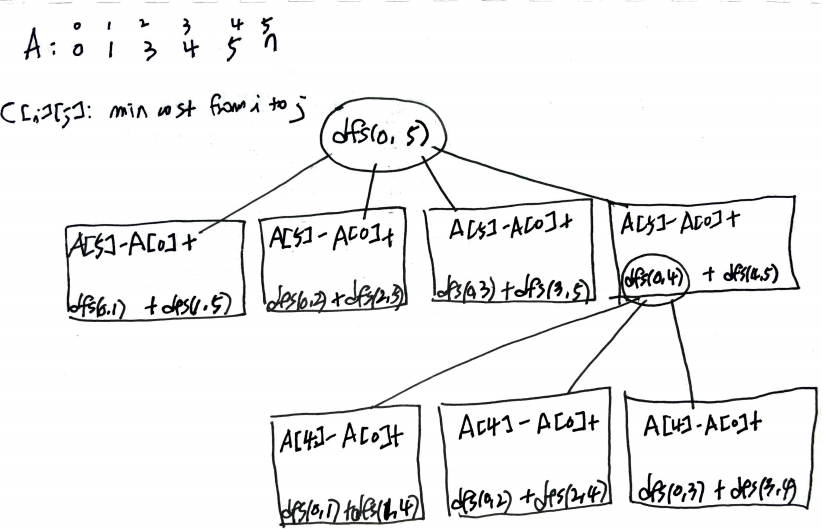 0 1 2 3 4 5
A: 0 1 3 4 5 7
C[i][j]: min cost from i to j
dfs(0, 5)
A[5]-A[0]+
dfs(0,1) + dfs(1,5)
A[5]-A[0]+
dfs(0,2)+dfs(2,5)
A[5]-A[0]+
dfs(0,3)+dfs(3,5)
A[5]-A[0]+
dfs(0,4) + dfs(4,5)
A[4]-A[0]+
dfs(0,1)+dfs(1,4)
A[4]-A[0]+
dfs(0,2)+dfs(2,4)
A[4]-A[0]+
dfs(0,3)+dfs(3,4)